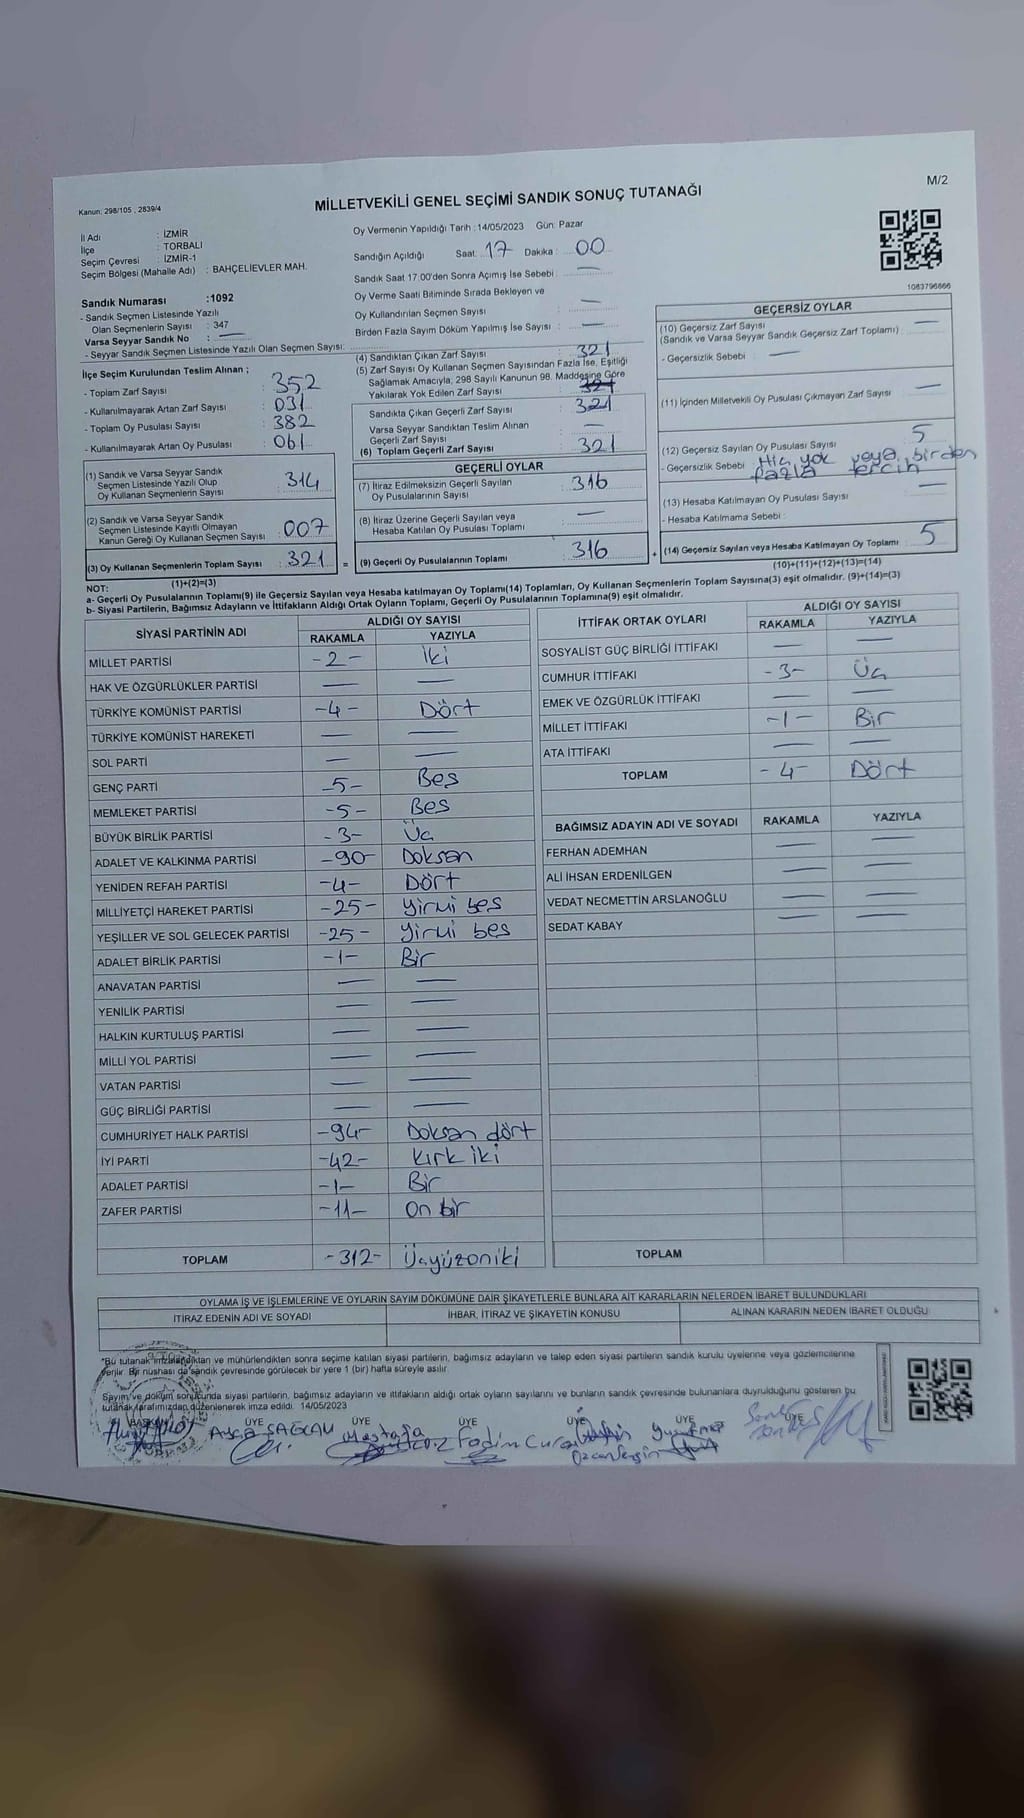 Kanun: 298/105 , 2839/4
MİLLETVEKİLİ GENEL SEÇİMİ SANDIK SONUÇ TUTANAĞI
M/2
İl Adı : İZMİR
İlçe : TORBALI
Seçim Çevresi : İZMİR-1
Seçim Bölgesi (Mahalle Adı) : BAHÇELİEVLER MAH.
Sandık Numarası :1092
- Sandık Seçmen Listesinde Yazılı
Olan Seçmenlerin Sayısı : 347
Varsa Seyyar Sandık No : —
- Seyyar Sandık Seçmen Listesinde Yazılı Olan Seçmen Sayısı:
İlçe Seçim Kurulundan Teslim Alınan ;
- Toplam Zarf Sayısı : 352
- Kullanılmayarak Artan Zarf Sayısı : 031
- Toplam Oy Pusulası Sayısı : 382
- Kullanılmayarak Artan Oy Pusulası : 061
(1) Sandık ve Varsa Seyyar Sandık
Seçmen Listesinde Yazılı Olup
Oy Kullanan Seçmenlerin Sayısı : 314
(2) Sandık ve Varsa Seyyar Sandık
Seçmen Listesinde Kayıtlı Olmayan
Kanun Gereği Oy Kullanan Seçmen Sayısı : 007
(3) Oy Kullanan Seçmenlerin Toplam Sayısı : 321
(1)+(2)=(3)
Oy Vermenin Yapıldığı Tarih : 14/05/2023 Gün: Pazar
Sandığın Açıldığı Saat: 17 Dakika : 00
Sandık Saat 17:00'den Sonra Açımış İse Sebebi : —
Oy Verme Saati Bitiminde Sırada Bekleyen ve
Oy Kullandırılan Seçmen Sayısı : —
Birden Fazla Sayım Döküm Yapılmış İse Sayısı : —
(4) Sandıktan Çıkan Zarf Sayısı : 321
(5) Zarf Sayısı Oy Kullanan Seçmen Sayısından Fazla İse, Eşitliği
Sağlamak Amacıyla, 298 Sayılı Kanunun 98. Maddesine Göre
Yakılarak Yok Edilen Zarf Sayısı :
Sandıkta Çıkan Geçerli Zarf Sayısı : 321
Varsa Seyyar Sandıktan Teslim Alınan
Geçerli Zarf Sayısı : —
(6) Toplam Geçerli Zarf Sayısı : 321
GEÇERLİ OYLAR
(7) İtiraz Edilmeksizin Geçerli Sayılan
Oy Pusulalarının Sayısı : 316
(8) İtiraz Üzerine Geçerli Sayılan veya
Hesaba Katılan Oy Pusulası Toplamı : —
= (9) Geçerli Oy Pusulalarının Toplamı : 316
1083796866
GEÇERSİZ OYLAR
(10) Geçersiz Zarf Sayısı
(Sandık ve Varsa Seyyar Sandık Geçersiz Zarf Toplamı) : —
- Geçersizlik Sebebi : —
(11) İçinden Milletvekili Oy Pusulası Çıkmayan Zarf Sayısı : —
(12) Geçersiz Sayılan Oy Pusulası Sayısı : 5
- Geçersizlik Sebebi : Hiç yok veya birden
fazla tercih
(13) Hesaba Katılmayan Oy Pusulası Sayısı : —
- Hesaba Katılmama Sebebi :
+ (14) Geçersiz Sayılan veya Hesaba Katılmayan Oy Toplamı : 5
(10)+(11)+(12)+(13)=(14)
NOT:
a- Geçerli Oy Pusulalarının Toplamı(9) ile Geçersiz Sayılan veya Hesaba katılmayan Oy Toplamı(14) Toplamları, Oy Kullanan Seçmenlerin Toplam Sayısına(3) eşit olmalıdır. (9)+(14)=(3)
b- Siyasi Partilerin, Bağımsız Adayların ve İttifakların Aldığı Ortak Oyların Toplamı, Geçerli Oy Pusulalarının Toplamına(9) eşit olmalıdır.
SİYASİ PARTİNİN ADI ALDIĞI OY SAYISI
RAKAMLA YAZIYLA
MİLLET PARTİSİ -2- İki
HAK VE ÖZGÜRLÜKLER PARTİSİ — —
TÜRKİYE KOMÜNİST PARTİSİ -4- Dört
TÜRKİYE KOMÜNİST HAREKETİ — —
SOL PARTİ — —
GENÇ PARTİ -5- Beş
MEMLEKET PARTİSİ -5- Beş
BÜYÜK BİRLİK PARTİSİ -3- Üç
ADALET VE KALKINMA PARTİSİ -90- Doksan
YENİDEN REFAH PARTİSİ -4- Dört
MİLLİYETÇİ HAREKET PARTİSİ -25- Yirmi beş
YEŞİLLER VE SOL GELECEK PARTİSİ -25- Yirmi beş
ADALET BİRLİK PARTİSİ -1- Bir
ANAVATAN PARTİSİ — —
YENİLİK PARTİSİ — —
HALKIN KURTULUŞ PARTİSİ — —
MİLLİ YOL PARTİSİ — —
VATAN PARTİSİ — —
GÜÇ BİRLİĞİ PARTİSİ — —
CUMHURİYET HALK PARTİSİ -94- Doksan dört
İYİ PARTİ -42- Kırk iki
ADALET PARTİSİ -1- Bir
ZAFER PARTİSİ -11- On bir
TOPLAM -312- Üçyüzoniki
İTTİFAK ORTAK OYLARI ALDIĞI OY SAYISI
RAKAMLA YAZIYLA
SOSYALİST GÜÇ BİRLİĞİ İTTİFAKI — —
CUMHUR İTTİFAKI -3- Üç
EMEK VE ÖZGÜRLÜK İTTİFAKI — —
MİLLET İTTİFAKI -1- Bir
ATA İTTİFAKI — —
TOPLAM -4- Dört
BAĞIMSIZ ADAYIN ADI VE SOYADI RAKAMLA YAZIYLA
FERHAN ADEMHAN — —
ALİ İHSAN ERDENİLGEN — —
VEDAT NECMETTİN ARSLANOĞLU — —
SEDAT KABAY — —
TOPLAM
OYLAMA İŞ VE İŞLEMLERİNE VE OYLARIN SAYIM DÖKÜMÜNE DAİR ŞİKAYETLERLE BUNLARA AİT KARARLARIN NELERDEN İBARET BULUNDUKLARI
İTİRAZ EDENİN ADI VE SOYADI İHBAR, İTİRAZ VE ŞİKAYETİN KONUSU ALINAN KARARIN NEDEN İBARET OLDUĞU
*Bu tutanak imzalandıktan ve mühürlendikten sonra seçime katılan siyasi partilerin, bağımsız adayların ve talep eden siyasi partilerin sandık kurulu üyelerine veya gözlemcilerine
verilir. Bir nüshası da sandık çevresinde görülecek bir yere 1 (bir) hafta süreyle asılır.
Sayım ve döküm sonucunda siyasi partilerin, bağımsız adayların ve ittifakların aldığı ortak oyların sayılarını ve bunların sandık çevresinde bulunanlara duyrulduğunu gösteren bu
tutanak tarafımızdan düzenlenerek imza edildi. 14/05/2023
ÜYE ÜYE ÜYE ÜYE ÜYE ÜYE
Ayça SAĞLAM Mustafa